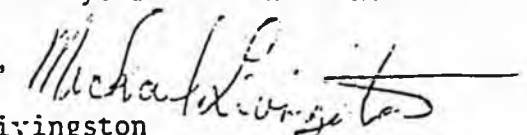 ,
Michael Livingston
ivingston